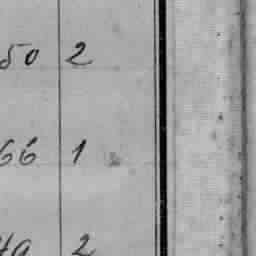 50 2
66 1
2